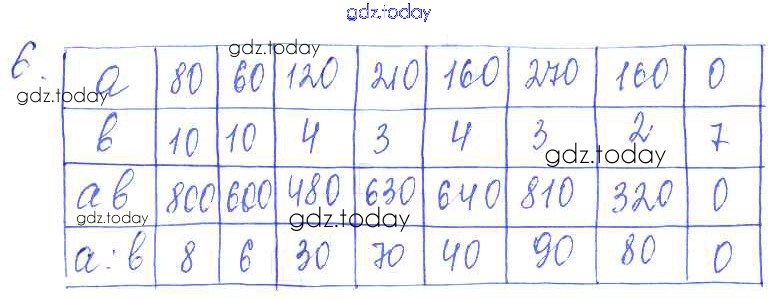 gdz.today
6.
gdz.today
gdz.today
a 80 60 120 210 160 270 160 0
в 10 10 4 3 4 3 2 7
gdz.today
aв 800 600 480 630 640 810 320 0
gdz.today
gdz.today
a:в 8 6 30 70 40 90 80 0